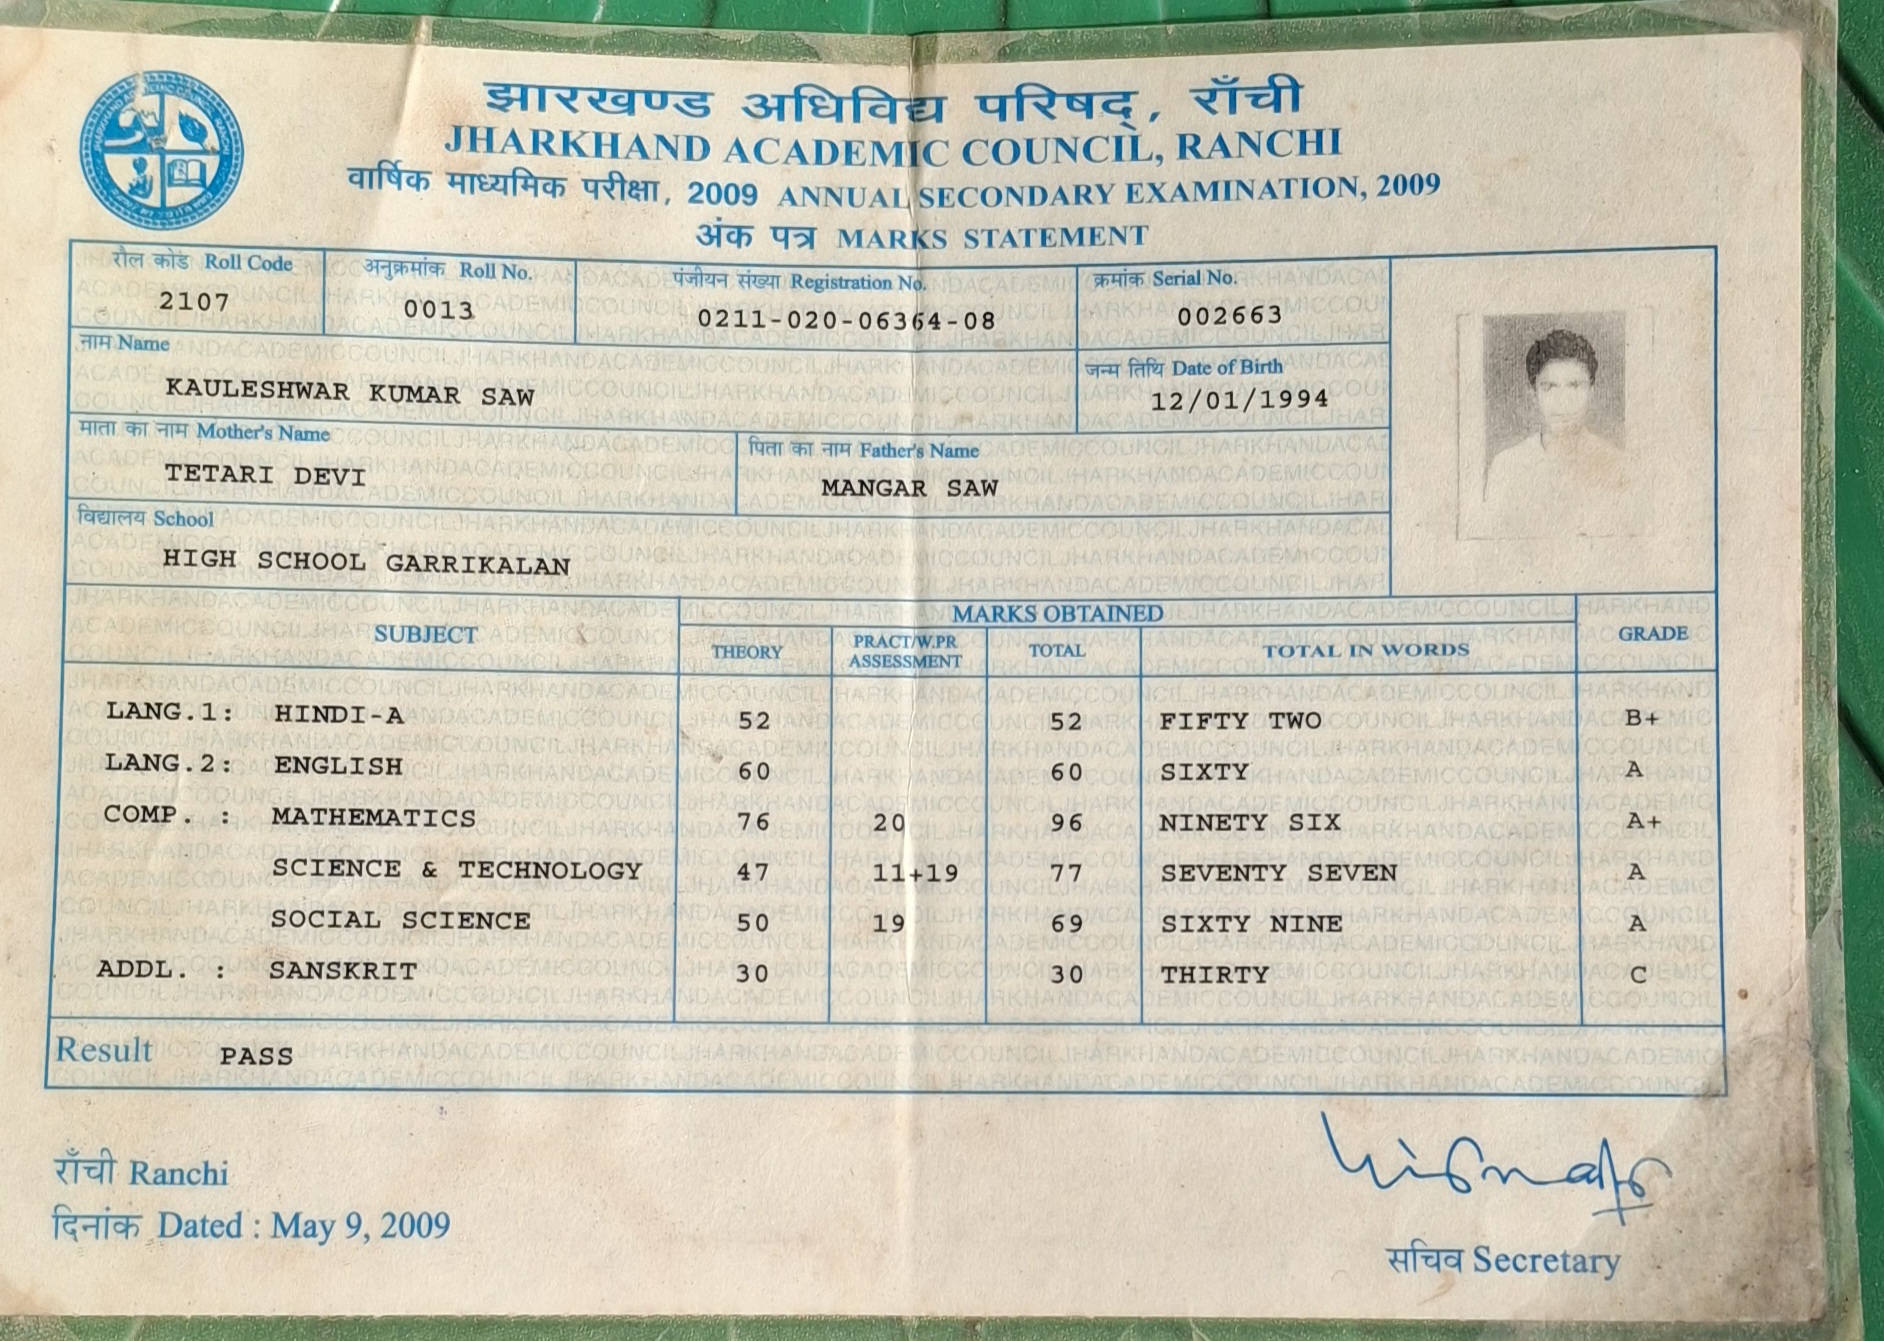 झारखण्ड अधिविद्य परिषद्, राँची
JHARKHAND ACADEMIC COUNCIL, RANCHI
वार्षिक माध्यमिक परीक्षा, 2009 ANNUAL SECONDARY EXAMINATION, 2009
अंक पत्र MARKS STATEMENT
रौल कोड Roll Code अनुक्रमांक Roll No. पंजीयन संख्या Registration No. क्रमांक Serial No.
2107 0013 0211-020-06364-08 002663
नाम Name जन्म तिथि Date of Birth
KAULESHWAR KUMAR SAW 12/01/1994
माता का नाम Mother's Name पिता का नाम Father's Name
TETARI DEVI MANGAR SAW
विद्यालय School
HIGH SCHOOL GARRIKALAN
SUBJECT MARKS OBTAINED GRADE
THEORY PRACT/W.PR ASSESSMENT TOTAL TOTAL IN WORDS
LANG.1: HINDI-A 52 52 FIFTY TWO B+
LANG.2: ENGLISH 60 60 SIXTY A
COMP. : MATHEMATICS 76 20 96 NINETY SIX A+
SCIENCE & TECHNOLOGY 47 11+19 77 SEVENTY SEVEN A
SOCIAL SCIENCE 50 19 69 SIXTY NINE A
ADDL. : SANSKRIT 30 30 THIRTY C
Result PASS
राँची Ranchi
दिनांक Dated : May 9, 2009
सचिव Secretary